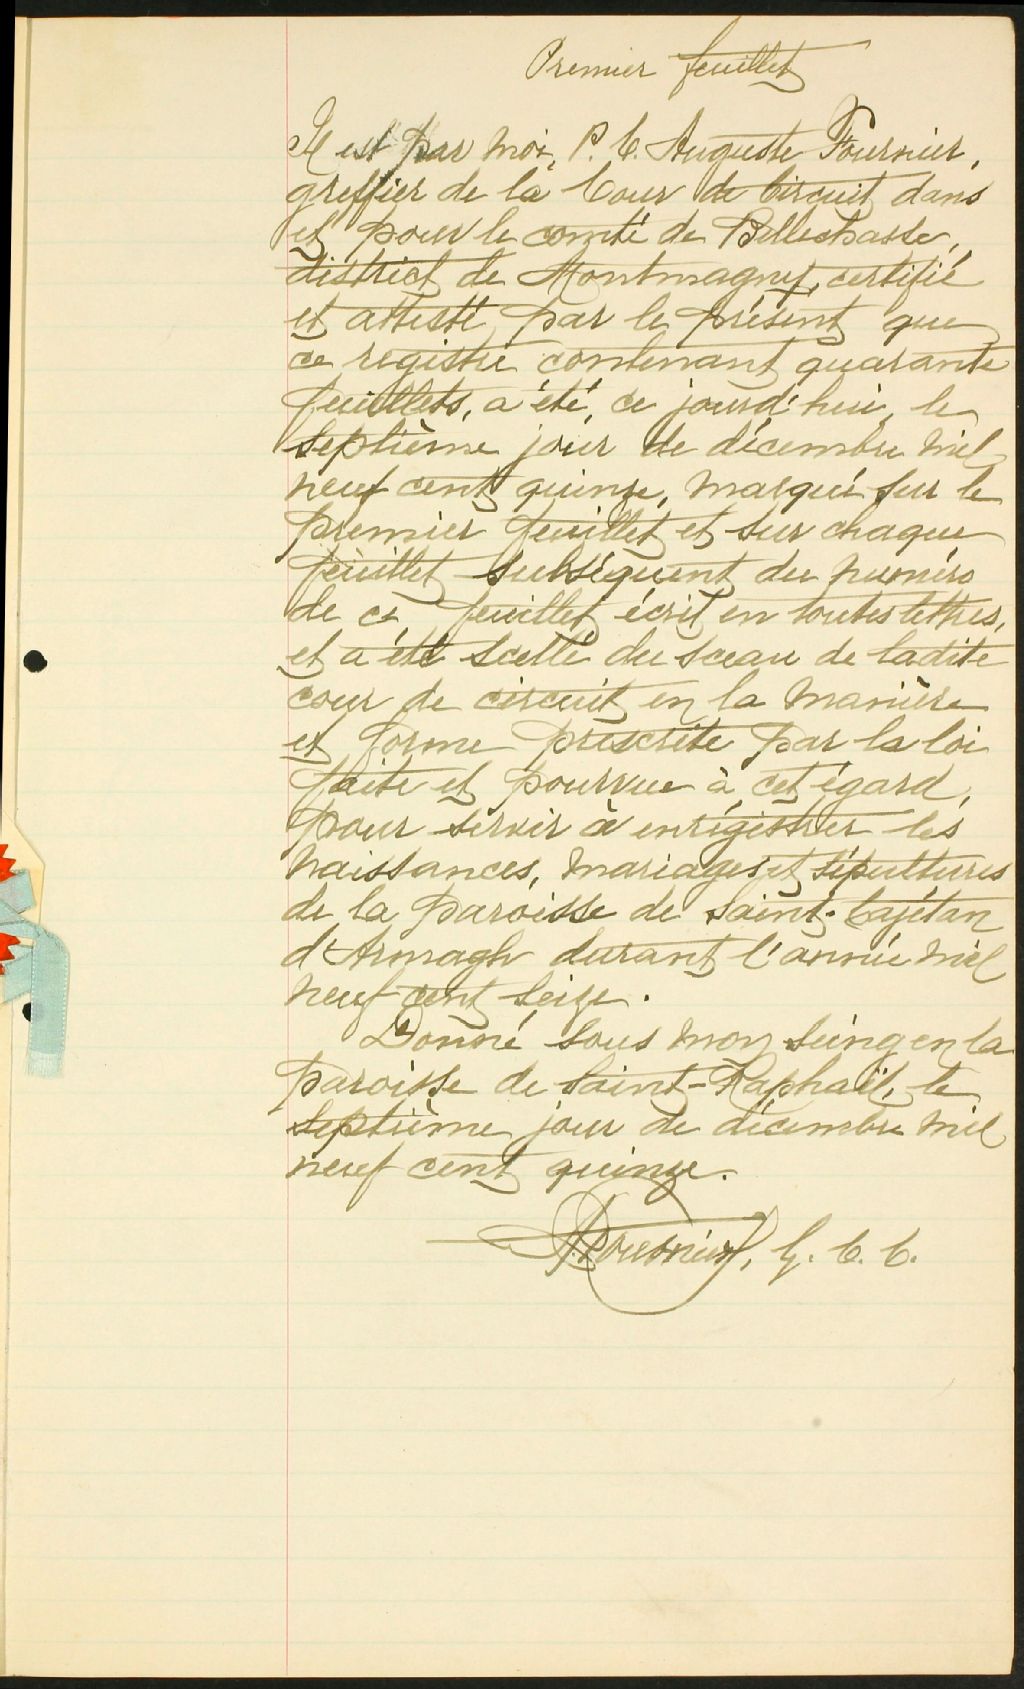 Premier feuillet
Il est par moi, P. C. Auguste Fournier,
greffier de la Cour de Circuit dans
et pour le comté de Bellechasse,
district de Montmagny, certifié
et attesté par le présent que
ce registre contenant quarante
feuillets, a été, ce jourd'hui, le
septième jour de décembre mil
neuf cent quinze, marqué sur le
premier feuillet et sur chaque
feuillet subséquent du numéro
de ce feuillet écrit en toutes lettres,
et a été scellé du sceau de ladite
cour de circuit en la manière
et forme prescrite par la loi
faite et pourvue à cet égard,
pour servir à enrégistrer les
naissances, mariages et sépultures
de la paroisse de Saint-Cajétan
d'Armagh durant l'année mil
neuf cent seize.
Donné sous mon seing en la
paroisse de Saint-Raphaël, le
septième jour de décembre mil
neuf cent quinze.
Fournier, G. C. C.